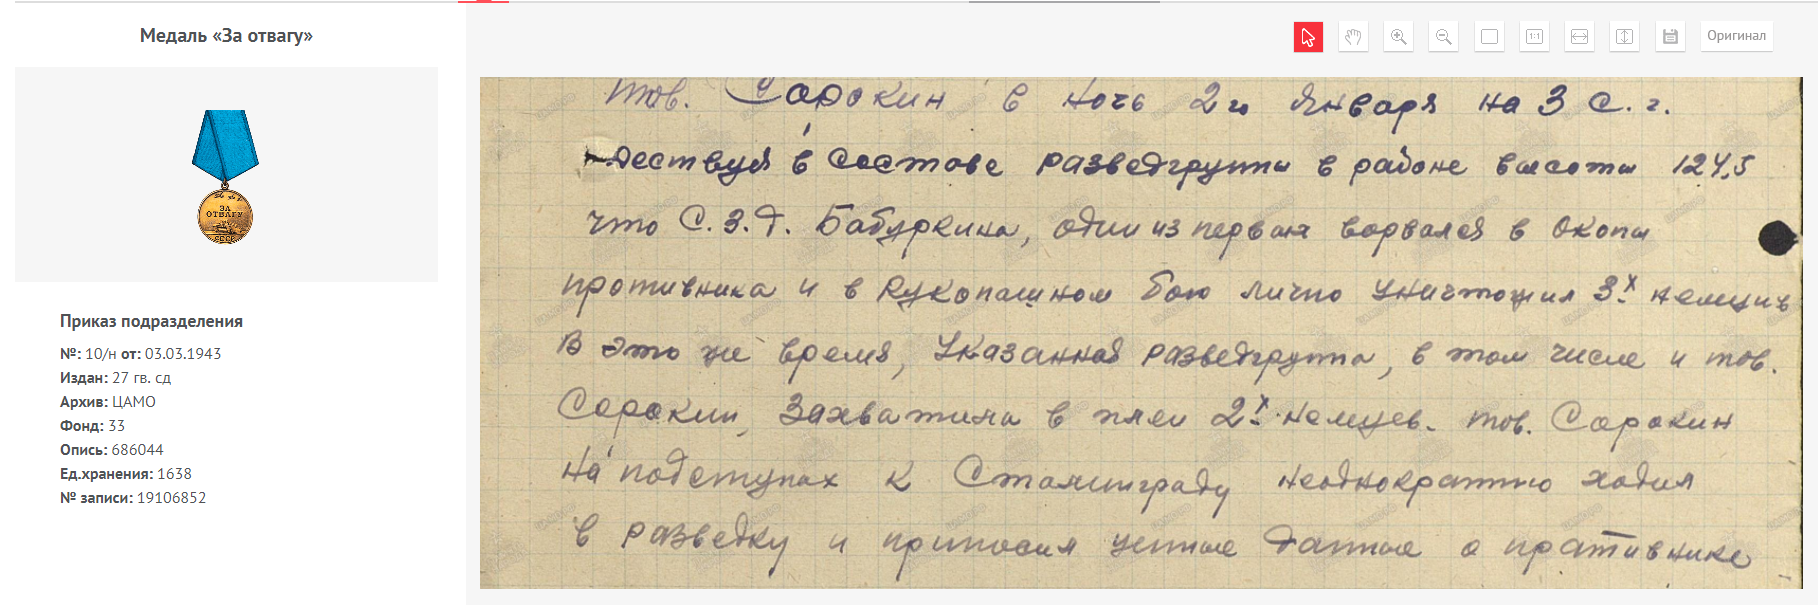 Медаль «За отвагу»
ЗА
ОТВАГУ
СССР
Приказ подразделения
№: 10/н от: 03.03.1943
Издан: 27 гв. сд
Архив: ЦАМО
Фонд: 33
Опись: 686044
Ед.хранения: 1638
№ записи: 19106852
1:1
Оригинал
тов. Сорокин в ночь 2го Января на 3 с. г.
дествуя в составе разведгруппы в районе высоты 124,5
что С.З.Д. Бабуркина, один из первых ворвался в окопы
противника и в рукопашном бою лично уничтожил 3х немцев
В это же время, указанная разведгруппа, в том числе и тов.
Сорокин, захватила в плен 2х немцев. тов. Сорокин
На подступах к Сталинграду неоднократно ходил
в разведку и приносил ценные данные о пративнике